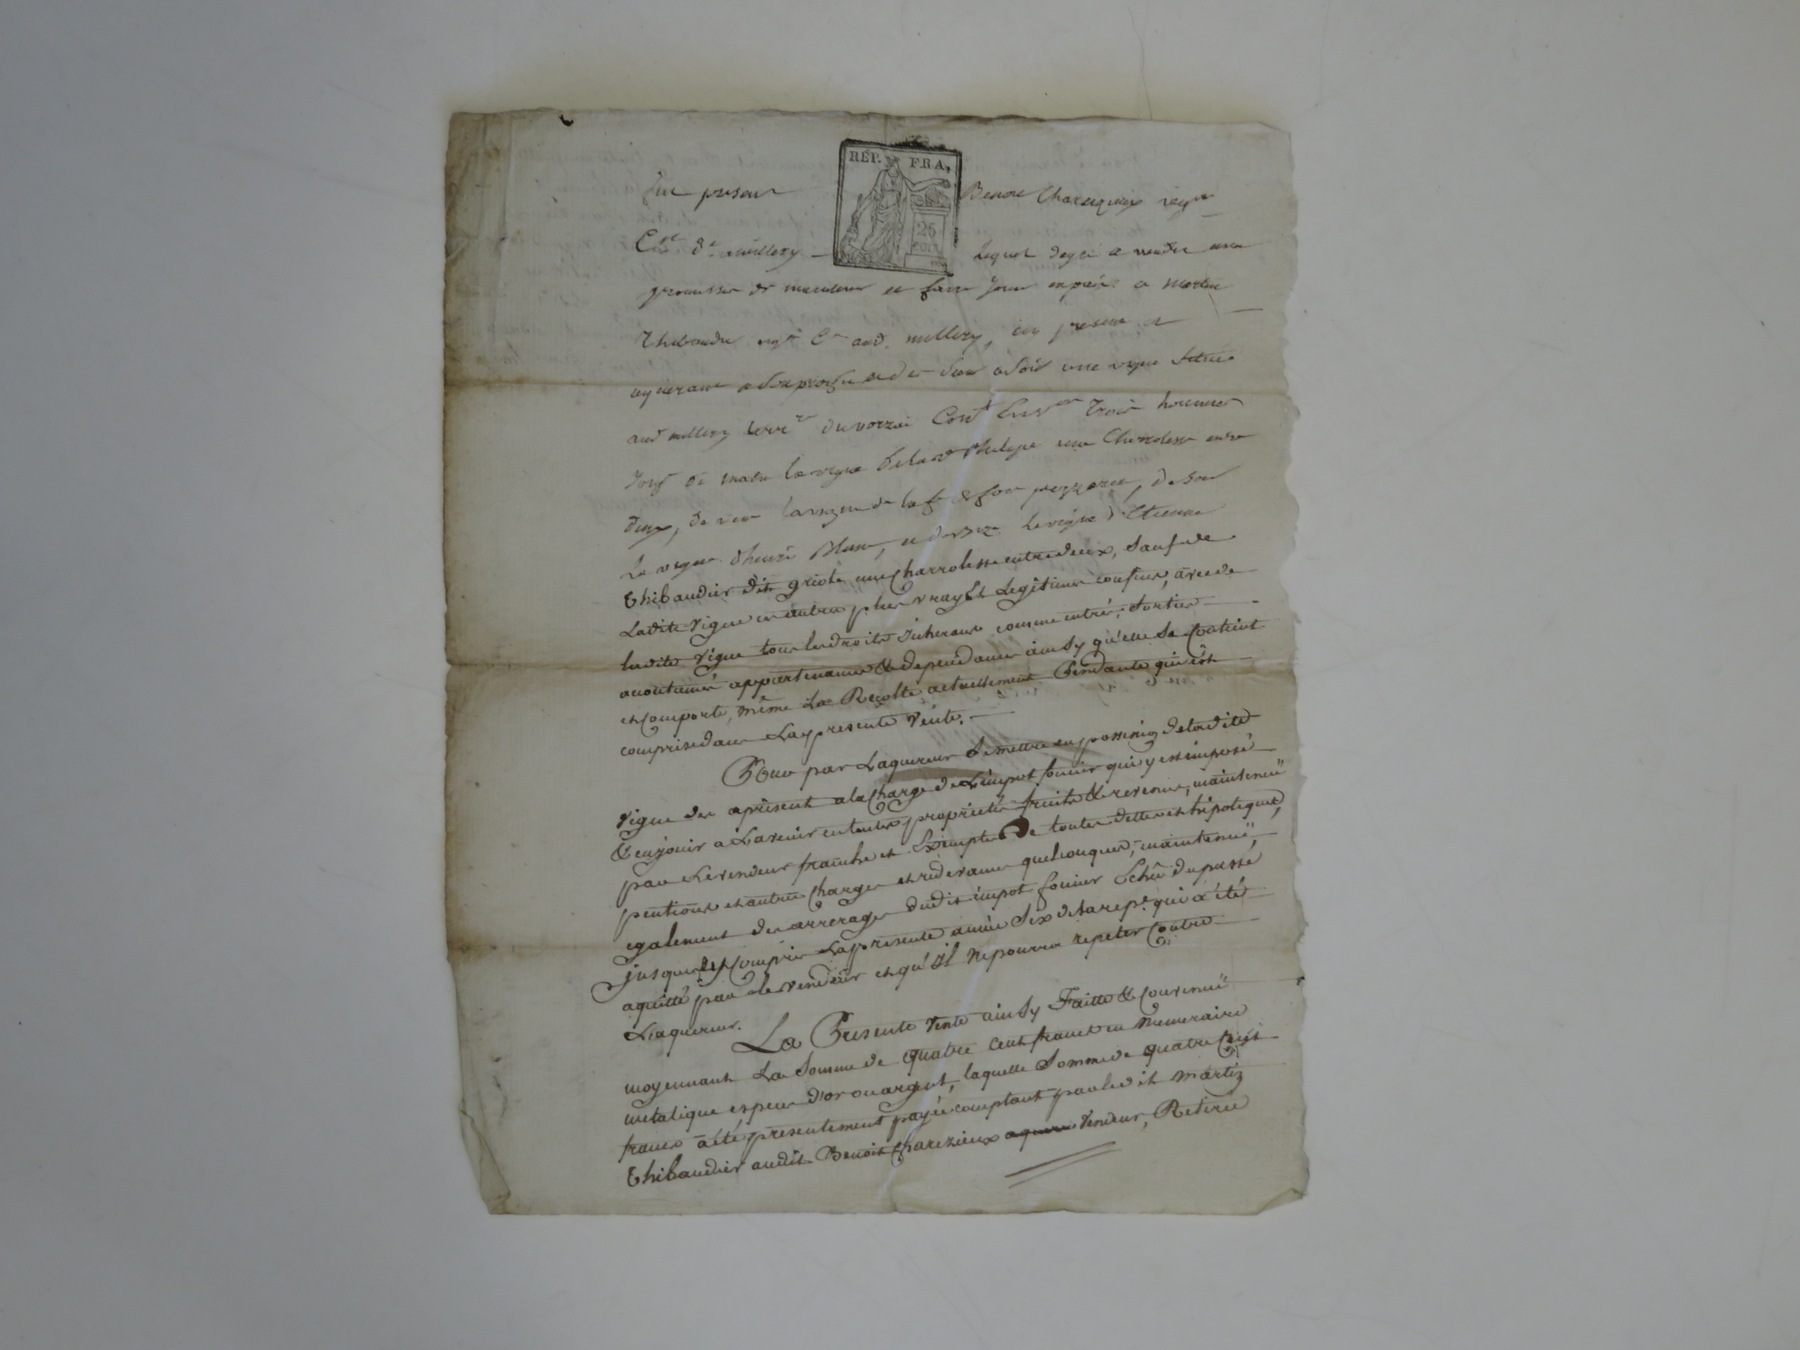 RÉP. FRA.
25
CENT.
Fut present Benoit Charezieux vig.on
C.on de millery lequel de gré a vendu avec
promesse de maintenir et faire jouir en paix a Martin
Thibaudier vig.on audt. millery, icy present et
aquerant a Son profit et des Siens a Soir une vigne Située
audt millery de Cont. Env.on Trois hommes
la vigne de philipe une Charrolesse entre
deux, de vent la vigne de de Soir
La vigne d'henri Blanc, et de bize La vigne d'Etienne
Thibaudier dit griole une Charrolesse entre deux, Sauf de
Ladite Vigne en autres plus vrays & Legitimes confins, avec de
ladite Vigne tous les droits inherans comme entrée, Sorties
acoutumées appartenances & dependances ainsy qu'elle Se Contient
et Comporte, même La Recolte actuellement Pendante qui est
comprise dans La presente Vente.
Pour par Laquereur Se mettre en possession de ladite
Vigne des aprésent a la Charge de L'impot foncier qui y est imposé
& en jouir a L'avenir en toutes proprietés fruits & revenus, maintenuë
par Le vendeur franche et Exempte De toutes dettes et hipoteques,
pentions et autres Charges et redevances quelconques, maintenuë,
egalement des arrerages dudit impot foncier Echû du passé
jusques & Compris La presente année Six de la rep.e qui a été
aquitté par le vendeur et qu'il ne pourra repeter Contre
L'aquereur.
La Presente Vente ainSy Faitte & Convenuë
moyennant La Somme de quatre Cent francs en Numeraire
metalique espece d'or ou argent, laquelle Somme de quatre Cent
francs a été presentement payée comptant par ledit Martin
Thibaudier audit Benoit Charezieux aquere Vendeur, Retirée